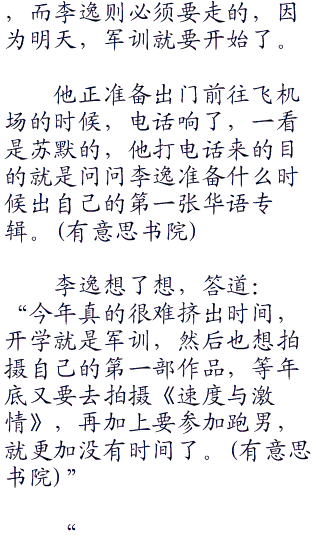 ，而李逸则必须要走的，因
为明天，军训就要开始了。
他正准备出门前往飞机
场的时候，电话响了，一看
是苏默的，他打电话来的目
的就是问问李逸准备什么时
候出自己的第一张华语专
辑。(有意思书院)
李逸想了想，答道：
“今年真的很难挤出时间，
开学就是军训，然后也想拍
摄自己的第一部作品，等年
底又要去拍摄《速度与激
情》，再加上要参加跑男，
就更加没有时间了。(有意思
书院)”
“